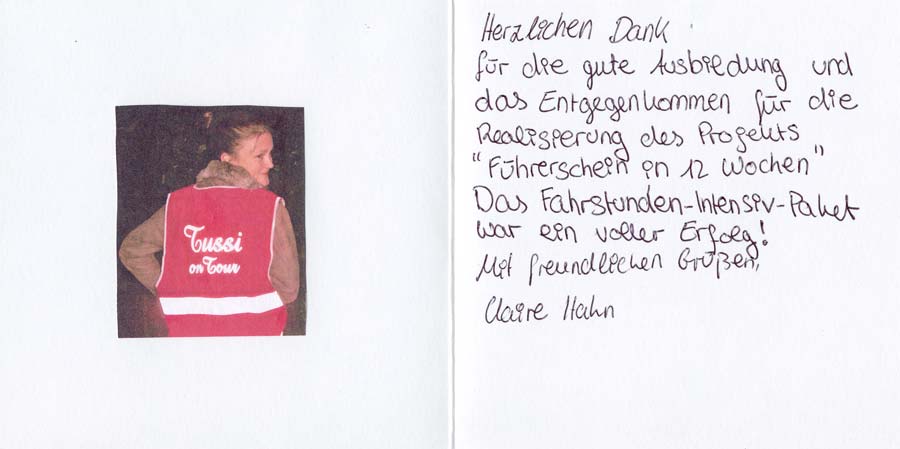 Tussi
on Tour
Herzlichen Dank
für die gute Ausbildung und
das Entgegenkommen für die
Realisierung des Projekts
"Führerschein in 12 Wochen"
Das Fahrstunden-Intensiv-Paket
war ein voller Erfolg!
Mit freundlichen Grüßen,
Claire Hahn